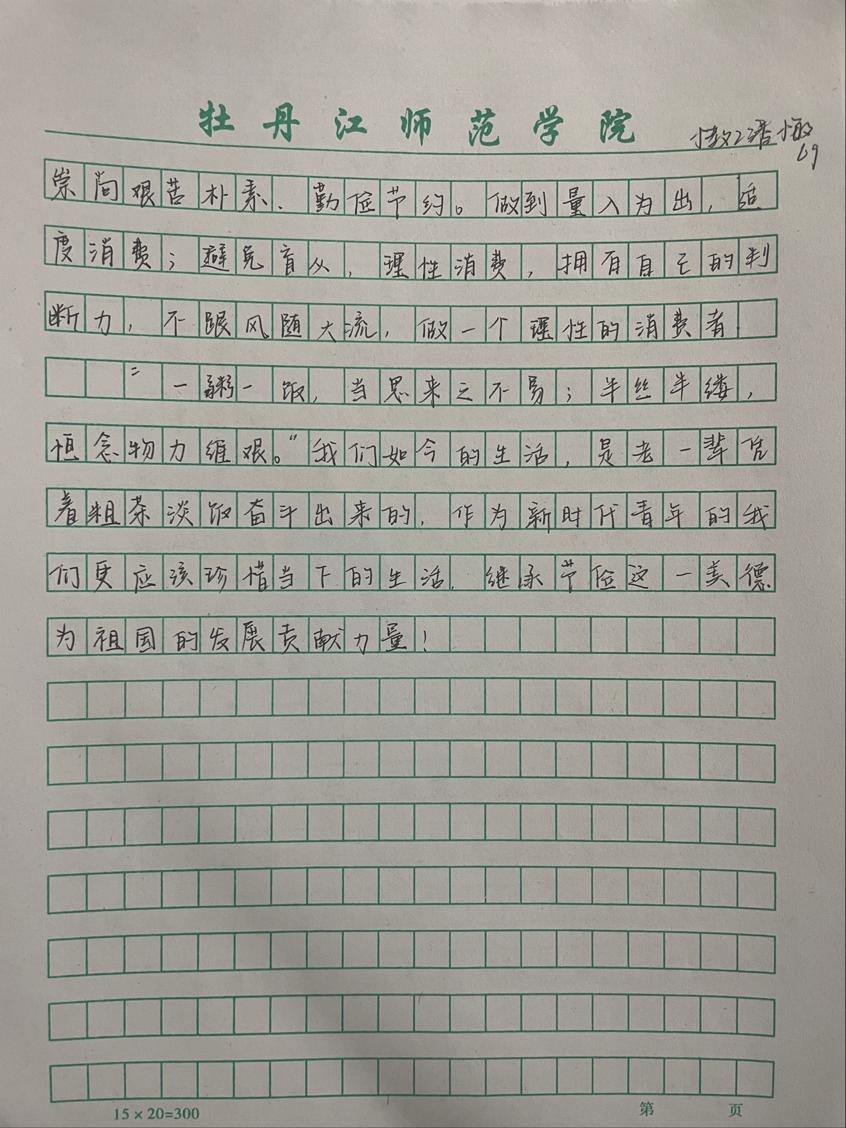 牡丹江师范学院
崇尚艰苦朴素、勤俭节约。做到量入为出,适
度消费;避免盲从,理性消费,拥有自己的判
断力,不跟风随大流,做一个理性的消费者
“一粥一饭,当思来之不易;半丝半缕,
恒念物力维艰。”我们如今的生活,是老一辈凭
着粗茶淡饭奋斗出来的,作为新时代青年的我
们更应该珍惜当下的生活,继承节俭这一美德
为祖国的发展贡献力量!
15×20=300
第 页